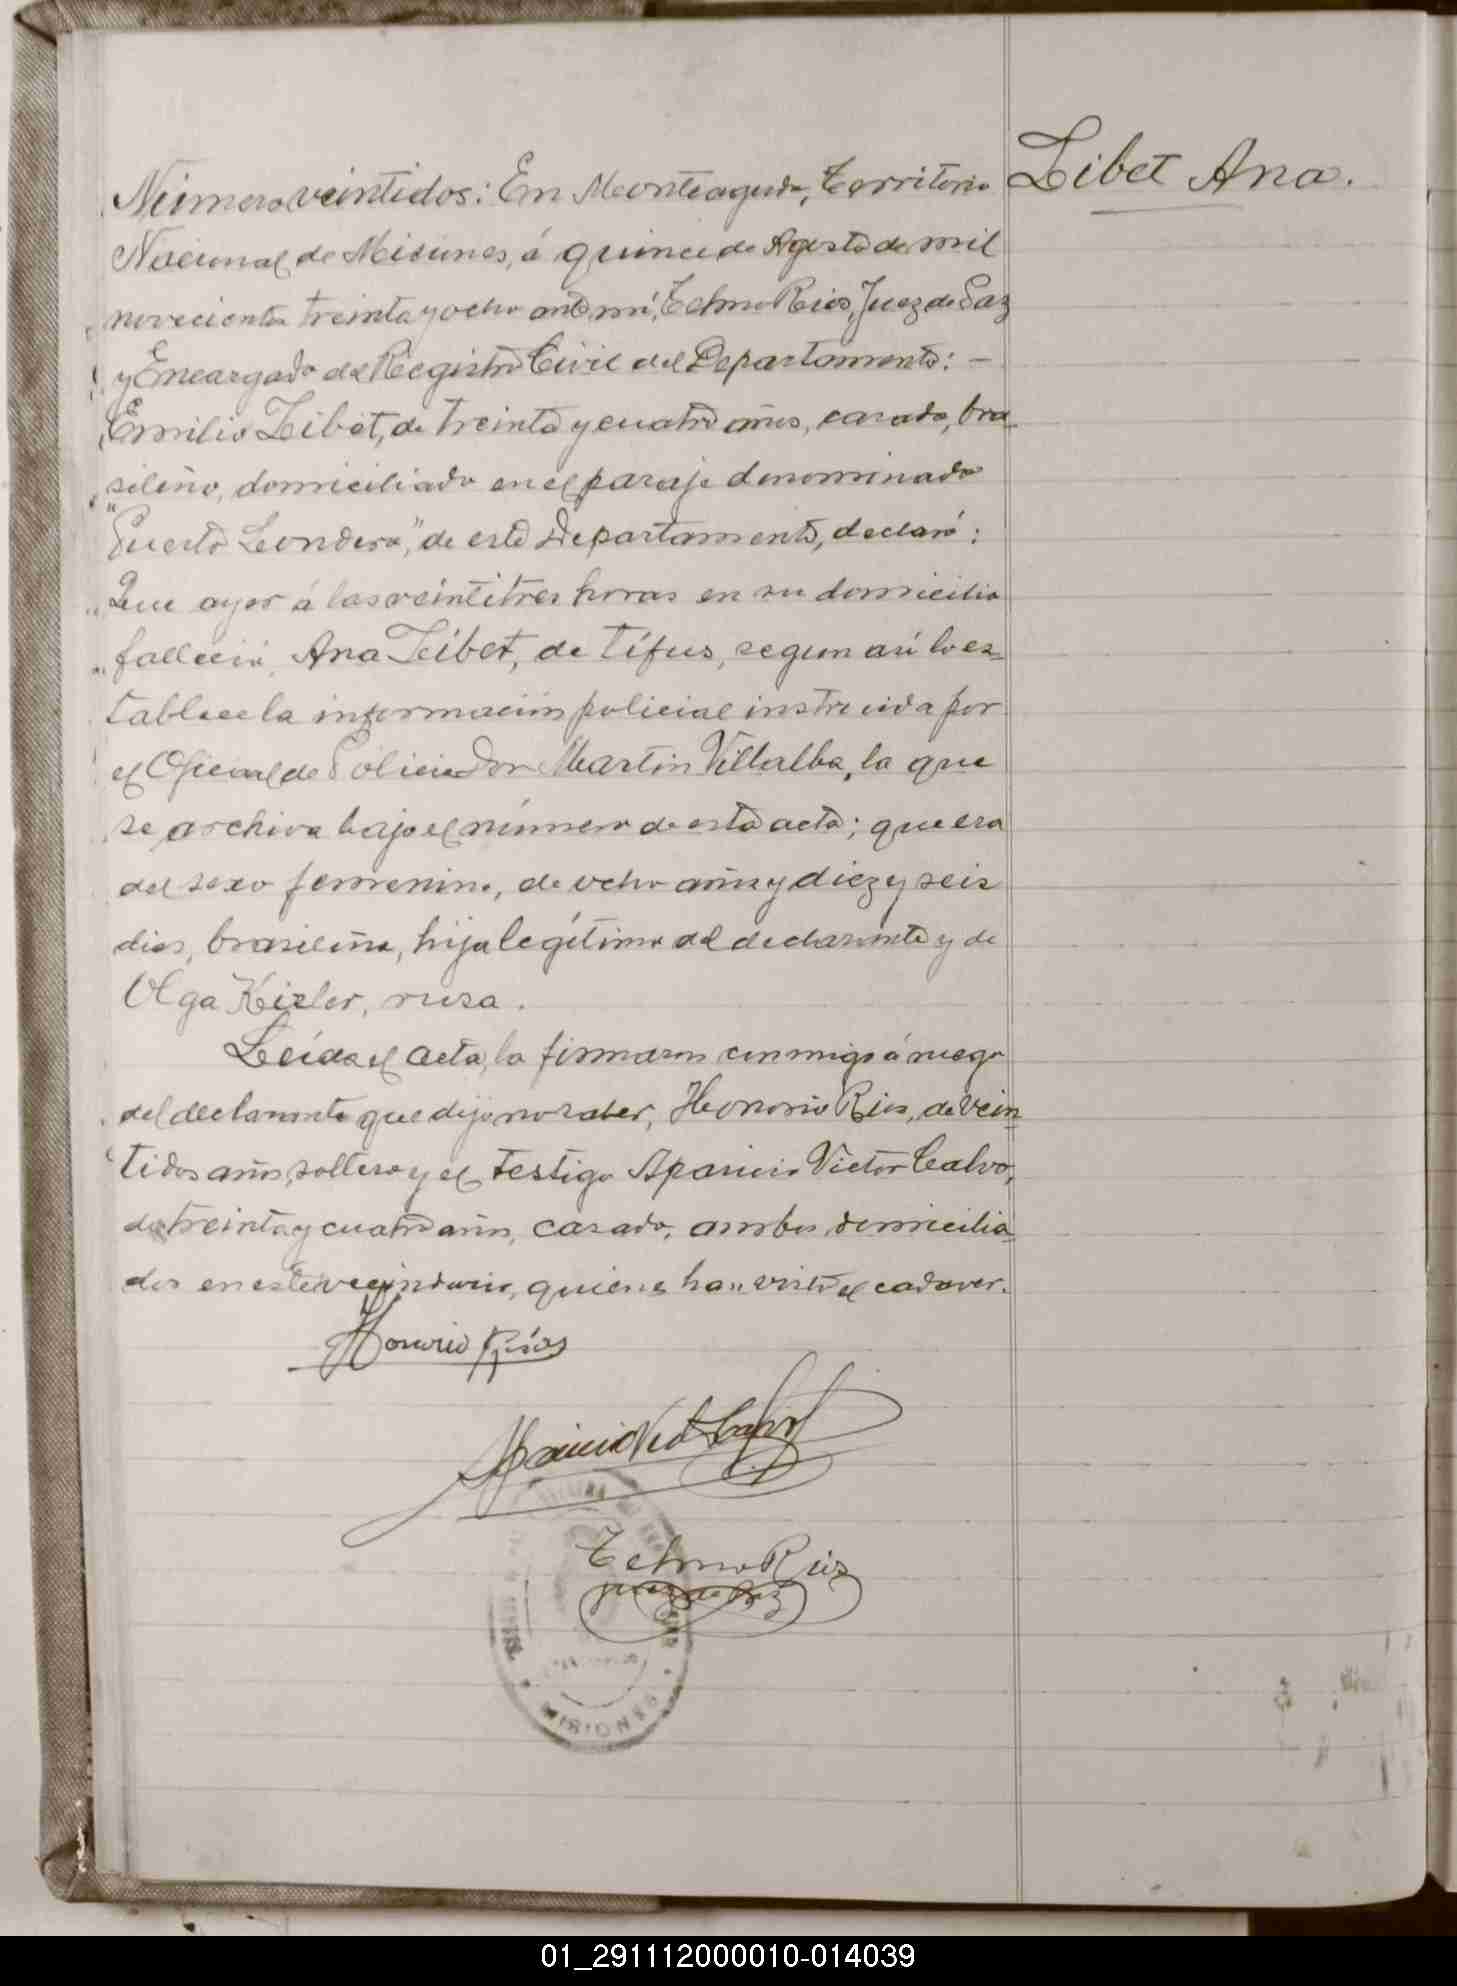 Libet Ana.
Número veintidos: En Monteagudo, Territorio
Nacional de Misiones, á quince de Agosto de mil
novecientos treinta y ocho ante mí, Telmo Rios, Juez de Paz
y Encargado del Registro Civil del Departamento: —
Emilio Libet, de treinta y cuatro años, casado, bra-
sileño, domiciliado en el paraje denominado
"Puerto Londero", de este Departamento, declaró:
Que ayer á las veintitres horas en su domicilio
falleció, Ana Libet, de tífus, segun asi lo es-
tablece la información policial instruida por
el Oficial de Policia Don Martin Villalba, la que
se archiva bajo el número de esta acta; que era
del sexo femenino, de ocho años y diez y seis
dias, brasileña, hija legítima del declarante y de
Olga Keisler, rusa.
Leída el acta, la firmaron conmigo á ruego
del declarante que dijo no saber, Honorio Rios, de vein-
tidos años, soltero y el testigo Aparicio Victor Calvo,
de treinta y cuatro años, casado, ambos domicilia-
dos en este vecindario, quienes han visto el cadaver.
Honorio Ríos
Aparicio Vict Calvo
Telmo Rios
juez de Paz
01_291112000010-014039